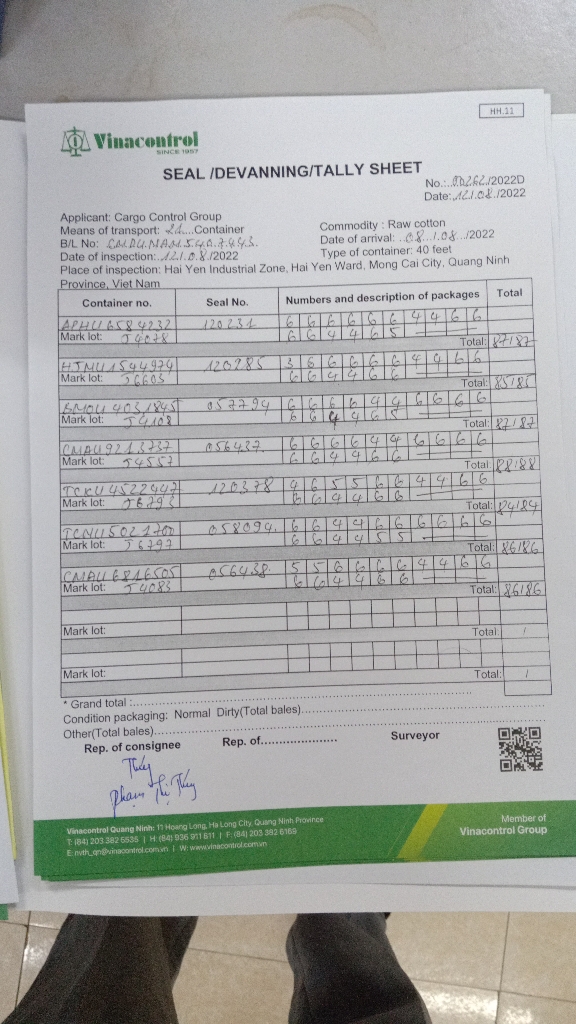 HH.11
Vinacontrol
SINCE 1957
SEAL /DEVANNING/TALLY SHEET
No.: 00262/2022D
Date: 12/.08./2022
Applicant: Cargo Control Group
Means of transport: 21 Container
Commodity : Raw cotton
B/L No: CMDU.NAM5407443.
Date of arrival: 08./.08./2022
Date of inspection: 12/.0.8./2022
Type of container: 40 feet
Place of inspection: Hai Yen Industrial Zone, Hai Yen Ward, Mong Cai City, Quang Ninh
Province, Viet Nam
Container no. Seal No. Numbers and description of packages Total
APHU6584232 120231 6 6 6 6 6 6 4 4 6 6
Mark lot: J4078 6 6 4 4 6 5 Total: 87/87
HJMU1544974 120285 3 5 6 6 6 6 4 4 6 6
Mark lot: J6603 6 6 4 4 6 6 Total: 85/85
BMOU4031845 057794 6 6 6 6 4 4 6 6 6 6
Mark lot: J4108 6 6 4 4 6 5 Total: 87/87
CMAU9213737 056437 6 6 6 6 4 4 6 6 6 6
Mark lot: J4557 6 6 4 4 6 6 Total: 88/88
TCKU4522447 120378 4 6 5 5 6 6 4 4 6 6
Mark lot: J6793 6 6 4 4 6 6 Total: 84/84
TCNU5021700 058094. 6 6 4 4 6 6 6 6 6 6
Mark lot: J6797 6 6 4 4 5 5 Total: 86/86
CMAU6816505 056438. 5 5 6 6 6 6 4 4 6 6
Mark lot: J4083 6 6 4 4 6 6 Total: 86/86
Mark lot: Total: /
Mark lot: Total: /
* Grand total :
Condition packaging: Normal Dirty(Total bales)
Other(Total bales)
Rep. of consignee Rep. of Surveyor
Thúy
Phạm Thị Thúy
Vinacontrol Quang Ninh: 11 Hoang Long, Ha Long City, Quang Ninh Province
T: (84) 203 382 5535 | H: (84) 936 911 611 | F: (84) 203 382 6169
E: nvth_qn@vinacontrol.com.vn | W: www.vinacontrol.com.vn
Member of
Vinacontrol Group